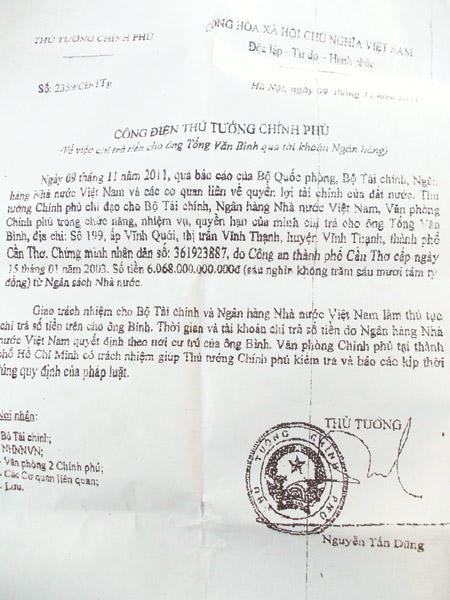 THỦ TƯỚNG CHÍNH PHỦ
CỘNG HÒA XÃ HỘI CHỦ NGHĨA VIỆT NAM
Độc lập - Tự do - Hạnh phúc
Số: 2359/CĐ-TTg
Hà Nội, ngày 09 tháng 11 năm 2011
CÔNG ĐIỆN THỦ TƯỚNG CHÍNH PHỦ
(Về việc chi trả tiền cho ông Tống Văn Bình qua tài khoản Ngân hàng)
Ngày 09 tháng 11 năm 2011, qua báo cáo của Bộ Quốc phòng, Bộ Tài chính, Ngân
hàng Nhà nước Việt Nam và các cơ quan liên về quyền lợi tài chính của đất nước. Thủ
tướng Chính phủ chỉ đạo cho Bộ Tài chính, Ngân hàng Nhà nước Việt Nam, Văn phòng
Chính phủ trong chức năng, nhiệm vụ, quyền hạn của mình chi trả cho ông Tống Văn
Bình, địa chỉ: Số 199, ấp Vĩnh Quới, thị trấn Vĩnh Thạnh, huyện Vĩnh Thạnh, thành phố
Cần Thơ. Chứng minh nhân dân số: 361923887, do Công an thành phố Cần Thơ cấp ngày
15 tháng 01 năm 2003. Số tiền 6.068.000.000.000đ (sáu nghìn không trăm sáu mươi tám tỷ
đồng) từ Ngân sách Nhà nước.
Giao trách nhiệm cho Bộ Tài chính và Ngân hàng Nhà nước Việt Nam làm thủ tục
chi trả số tiền trên cho ông Bình. Thời gian và tài khoản chi trả số tiền do Ngân hàng Nhà
nước Việt Nam quyết định theo nơi cư trú của ông Bình. Văn phòng Chính phủ tại thành
phố Hồ Chí Minh có trách nhiệm giúp Thủ tướng Chính phủ kiểm tra và báo cáo kịp thời
đúng quy định của pháp luật.
Nơi nhận:
Bộ Tài chính;
NHNNVN;
- Văn phòng 2 Chính phủ;
- Các Cơ quan liên quan;
- Lưu.
THỦ TƯỚNG
THỦ TƯỚNG CHÍNH PHỦ
Nguyễn Tấn Dũng